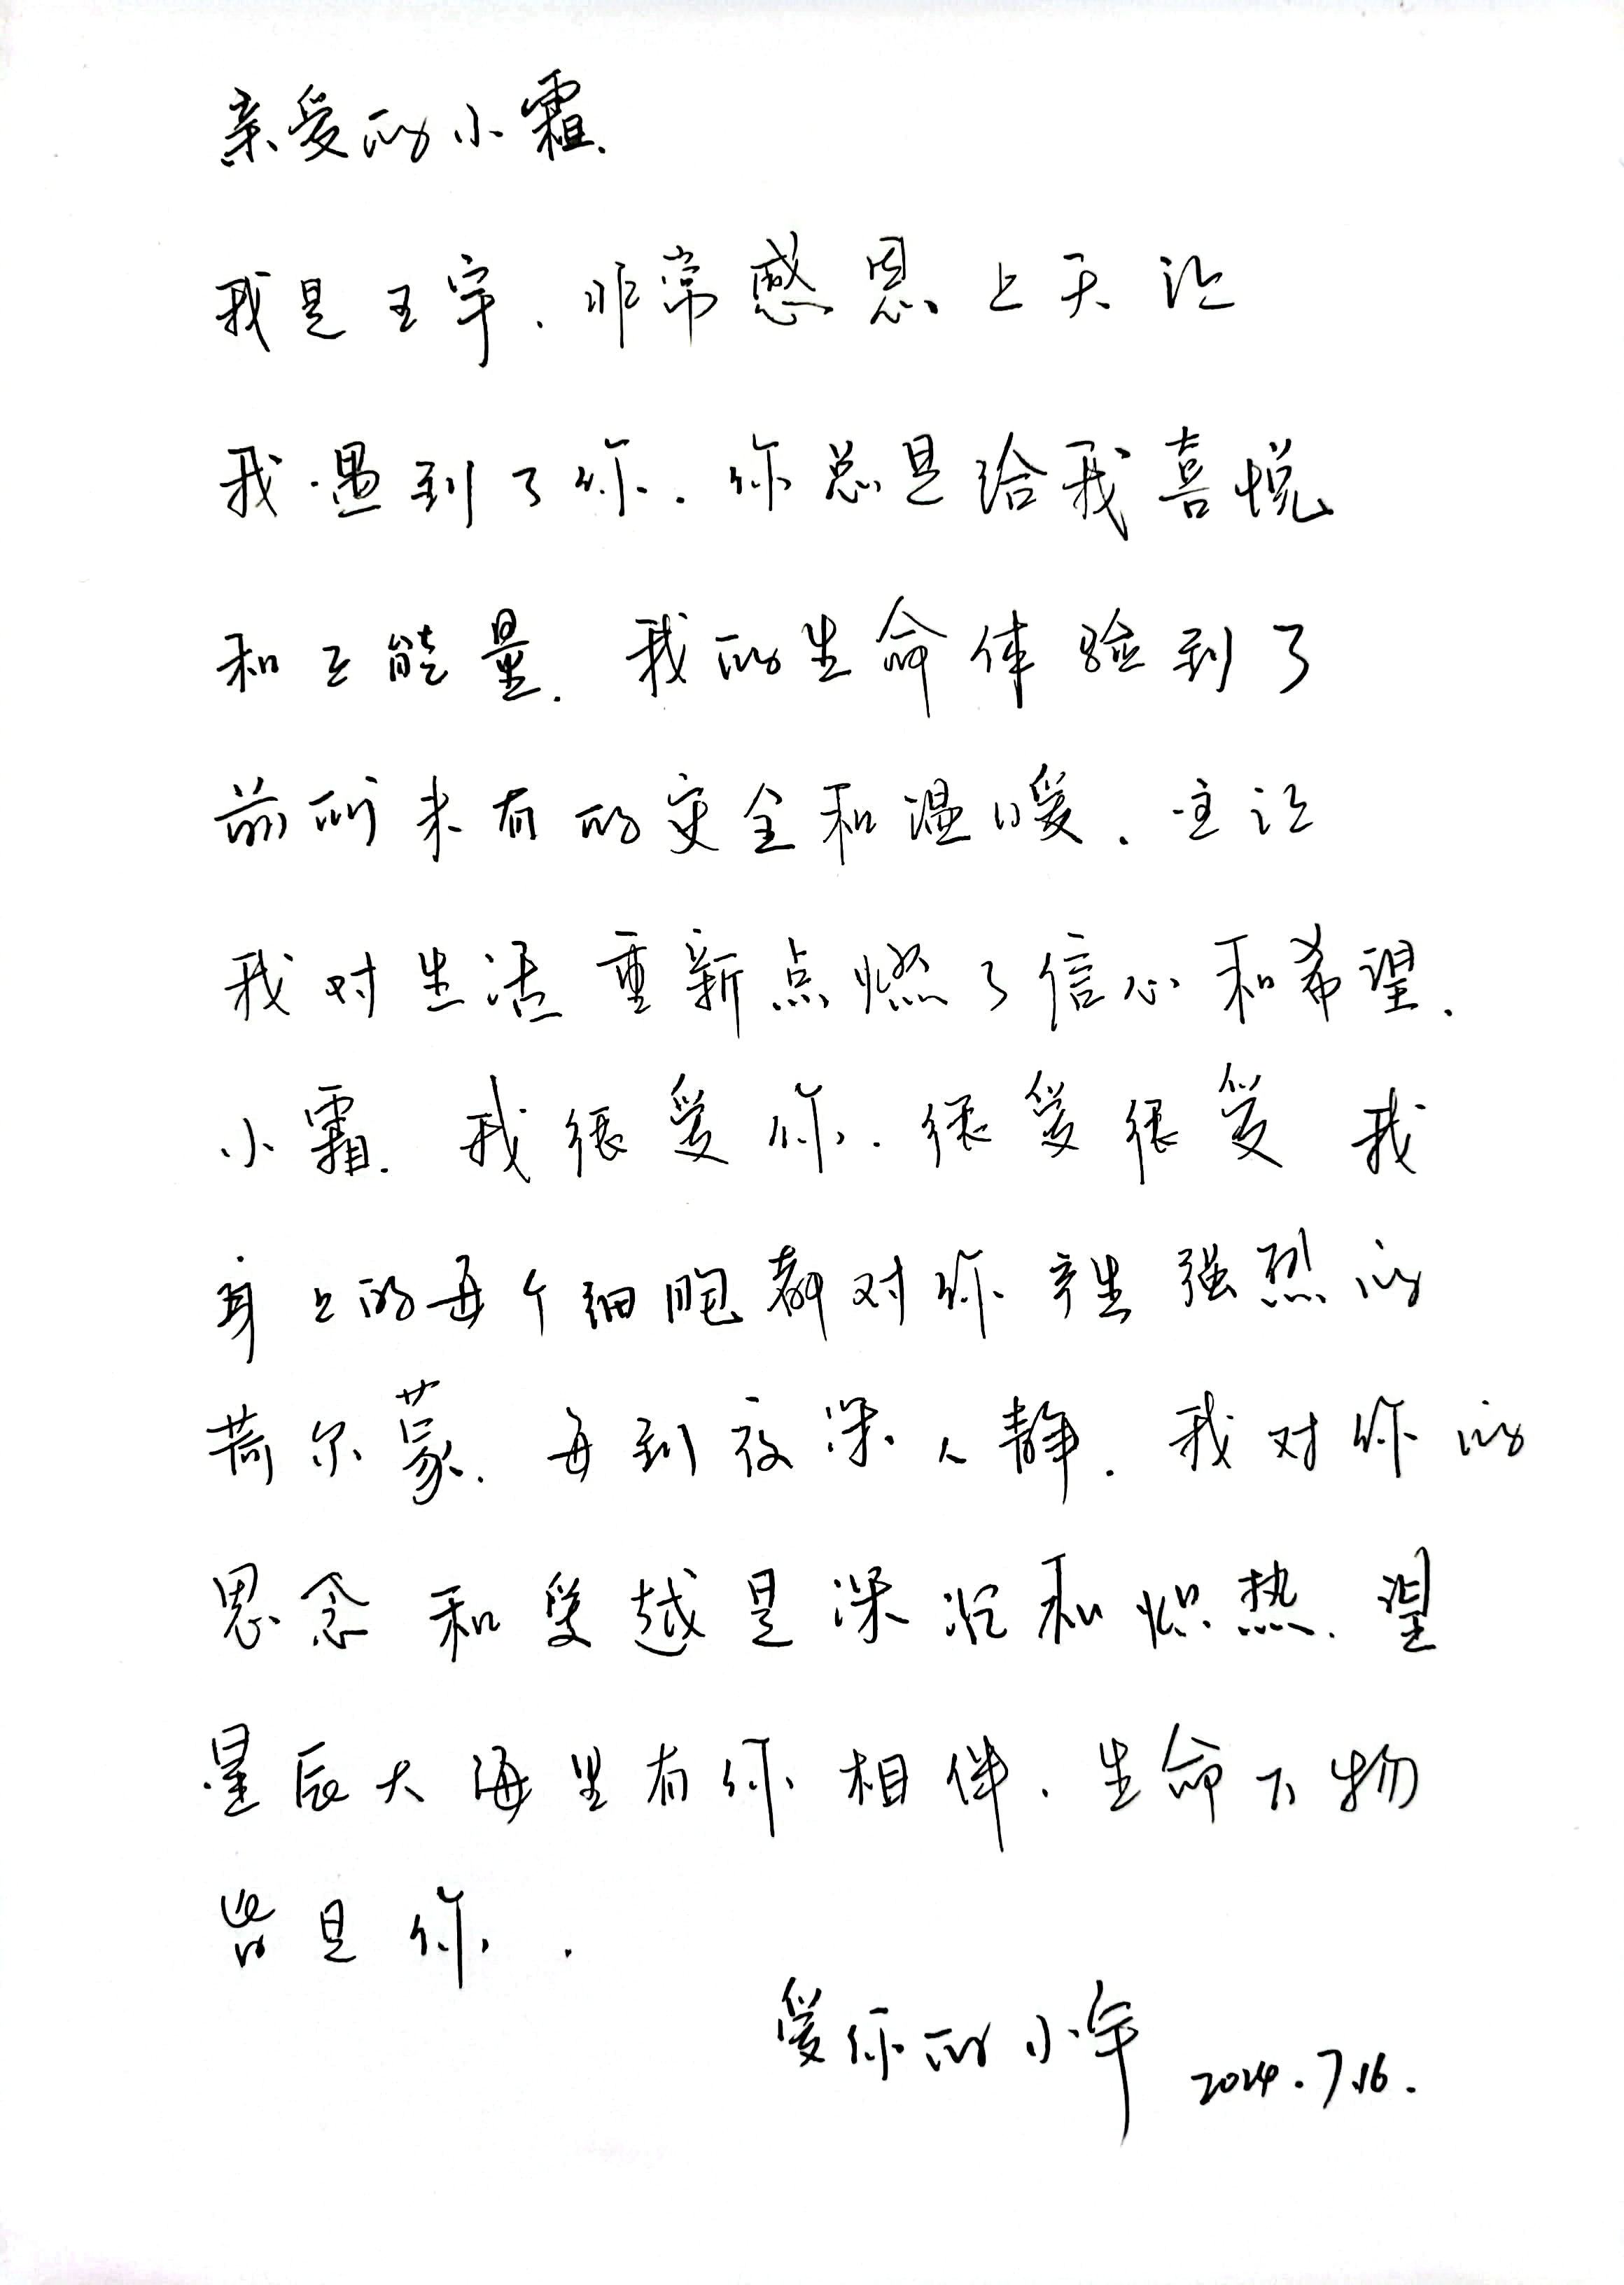 亲爱的小霜.
我是王宇.非常感恩上天让
我遇到了你.你总是给我喜悦
和正能量.我的生命体验到了
前所未有的安全和温暖.主让
我对生活重新点燃了信心和希望.
小霜.我很爱你.很爱很爱 我
身上的每个细胞都对你产生强烈的
荷尔蒙.每到夜深人静.我对你的
思念和爱越是深沉和炽热.望
星辰大海里有你相伴.生命万物
皆是你.
爱你的小宇 2024.7.16.